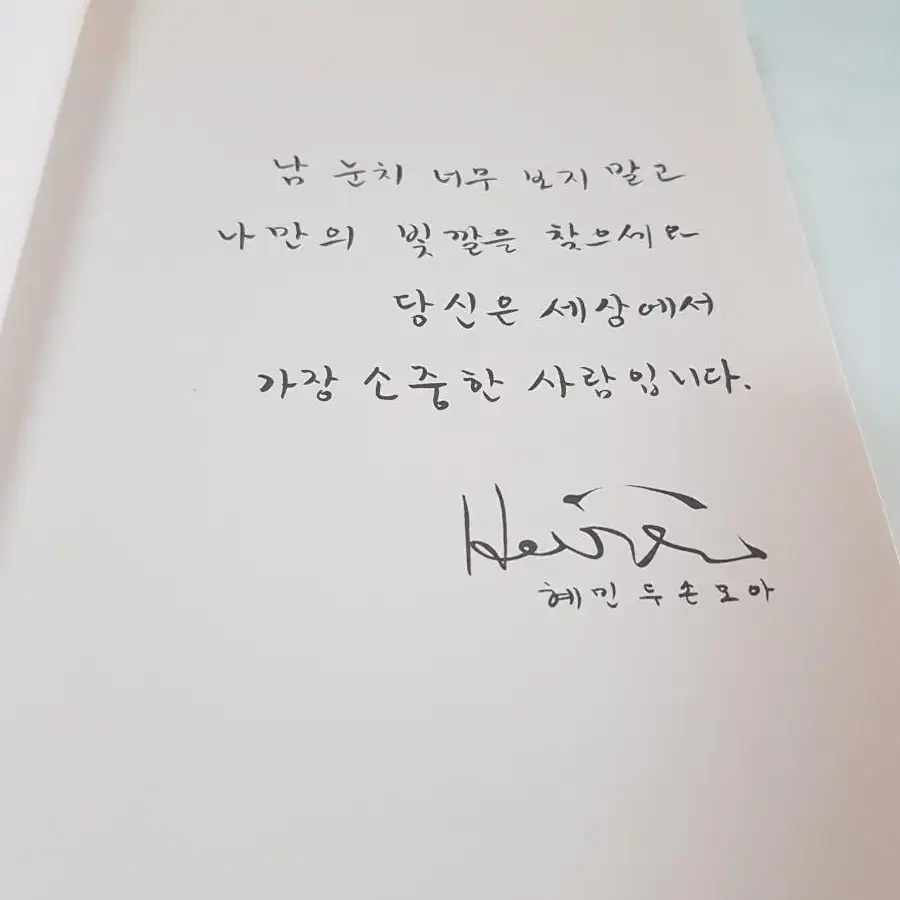 남 눈치 너무 보지 말고
나만의 빛깔을 찾으세요
당신은 세상에서
가장 소중한 사람입니다.
혜민 두손 모아